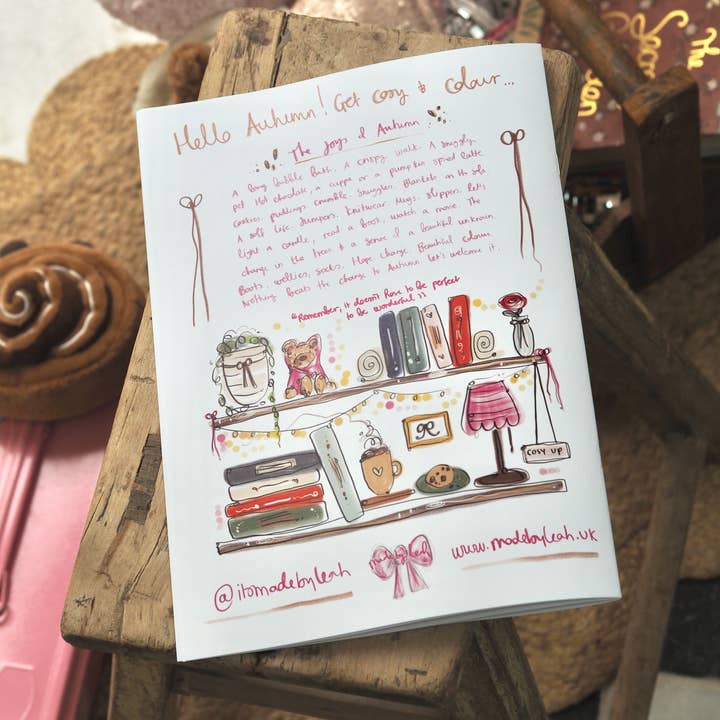 Hello Autumn! Get cosy & colour...
The Joys of Autumn
A long bubble bath. A crispy walk. A snuggly
pet. Hot chocolate, a cuppa or a pumpkin spiced latte
cookies, puddings crumble. Snuggles. Blankets on the sofa
A self life. Jumpers. Knitwear. Mugs. Slippers. let's
light a candle, read a book, watch a movie. The
change in the trees & a sense of a beautiful unknown.
Boots, wellies, socks. Hope. Change. Beautiful colours.
Nothing beats the change to Autumn. Let's welcome it.
"Remember, it doesn't have to be perfect
to be wonderful"
COSY UP
madebyleah
@itsmadebyleah
www.madebyleah.uk
The